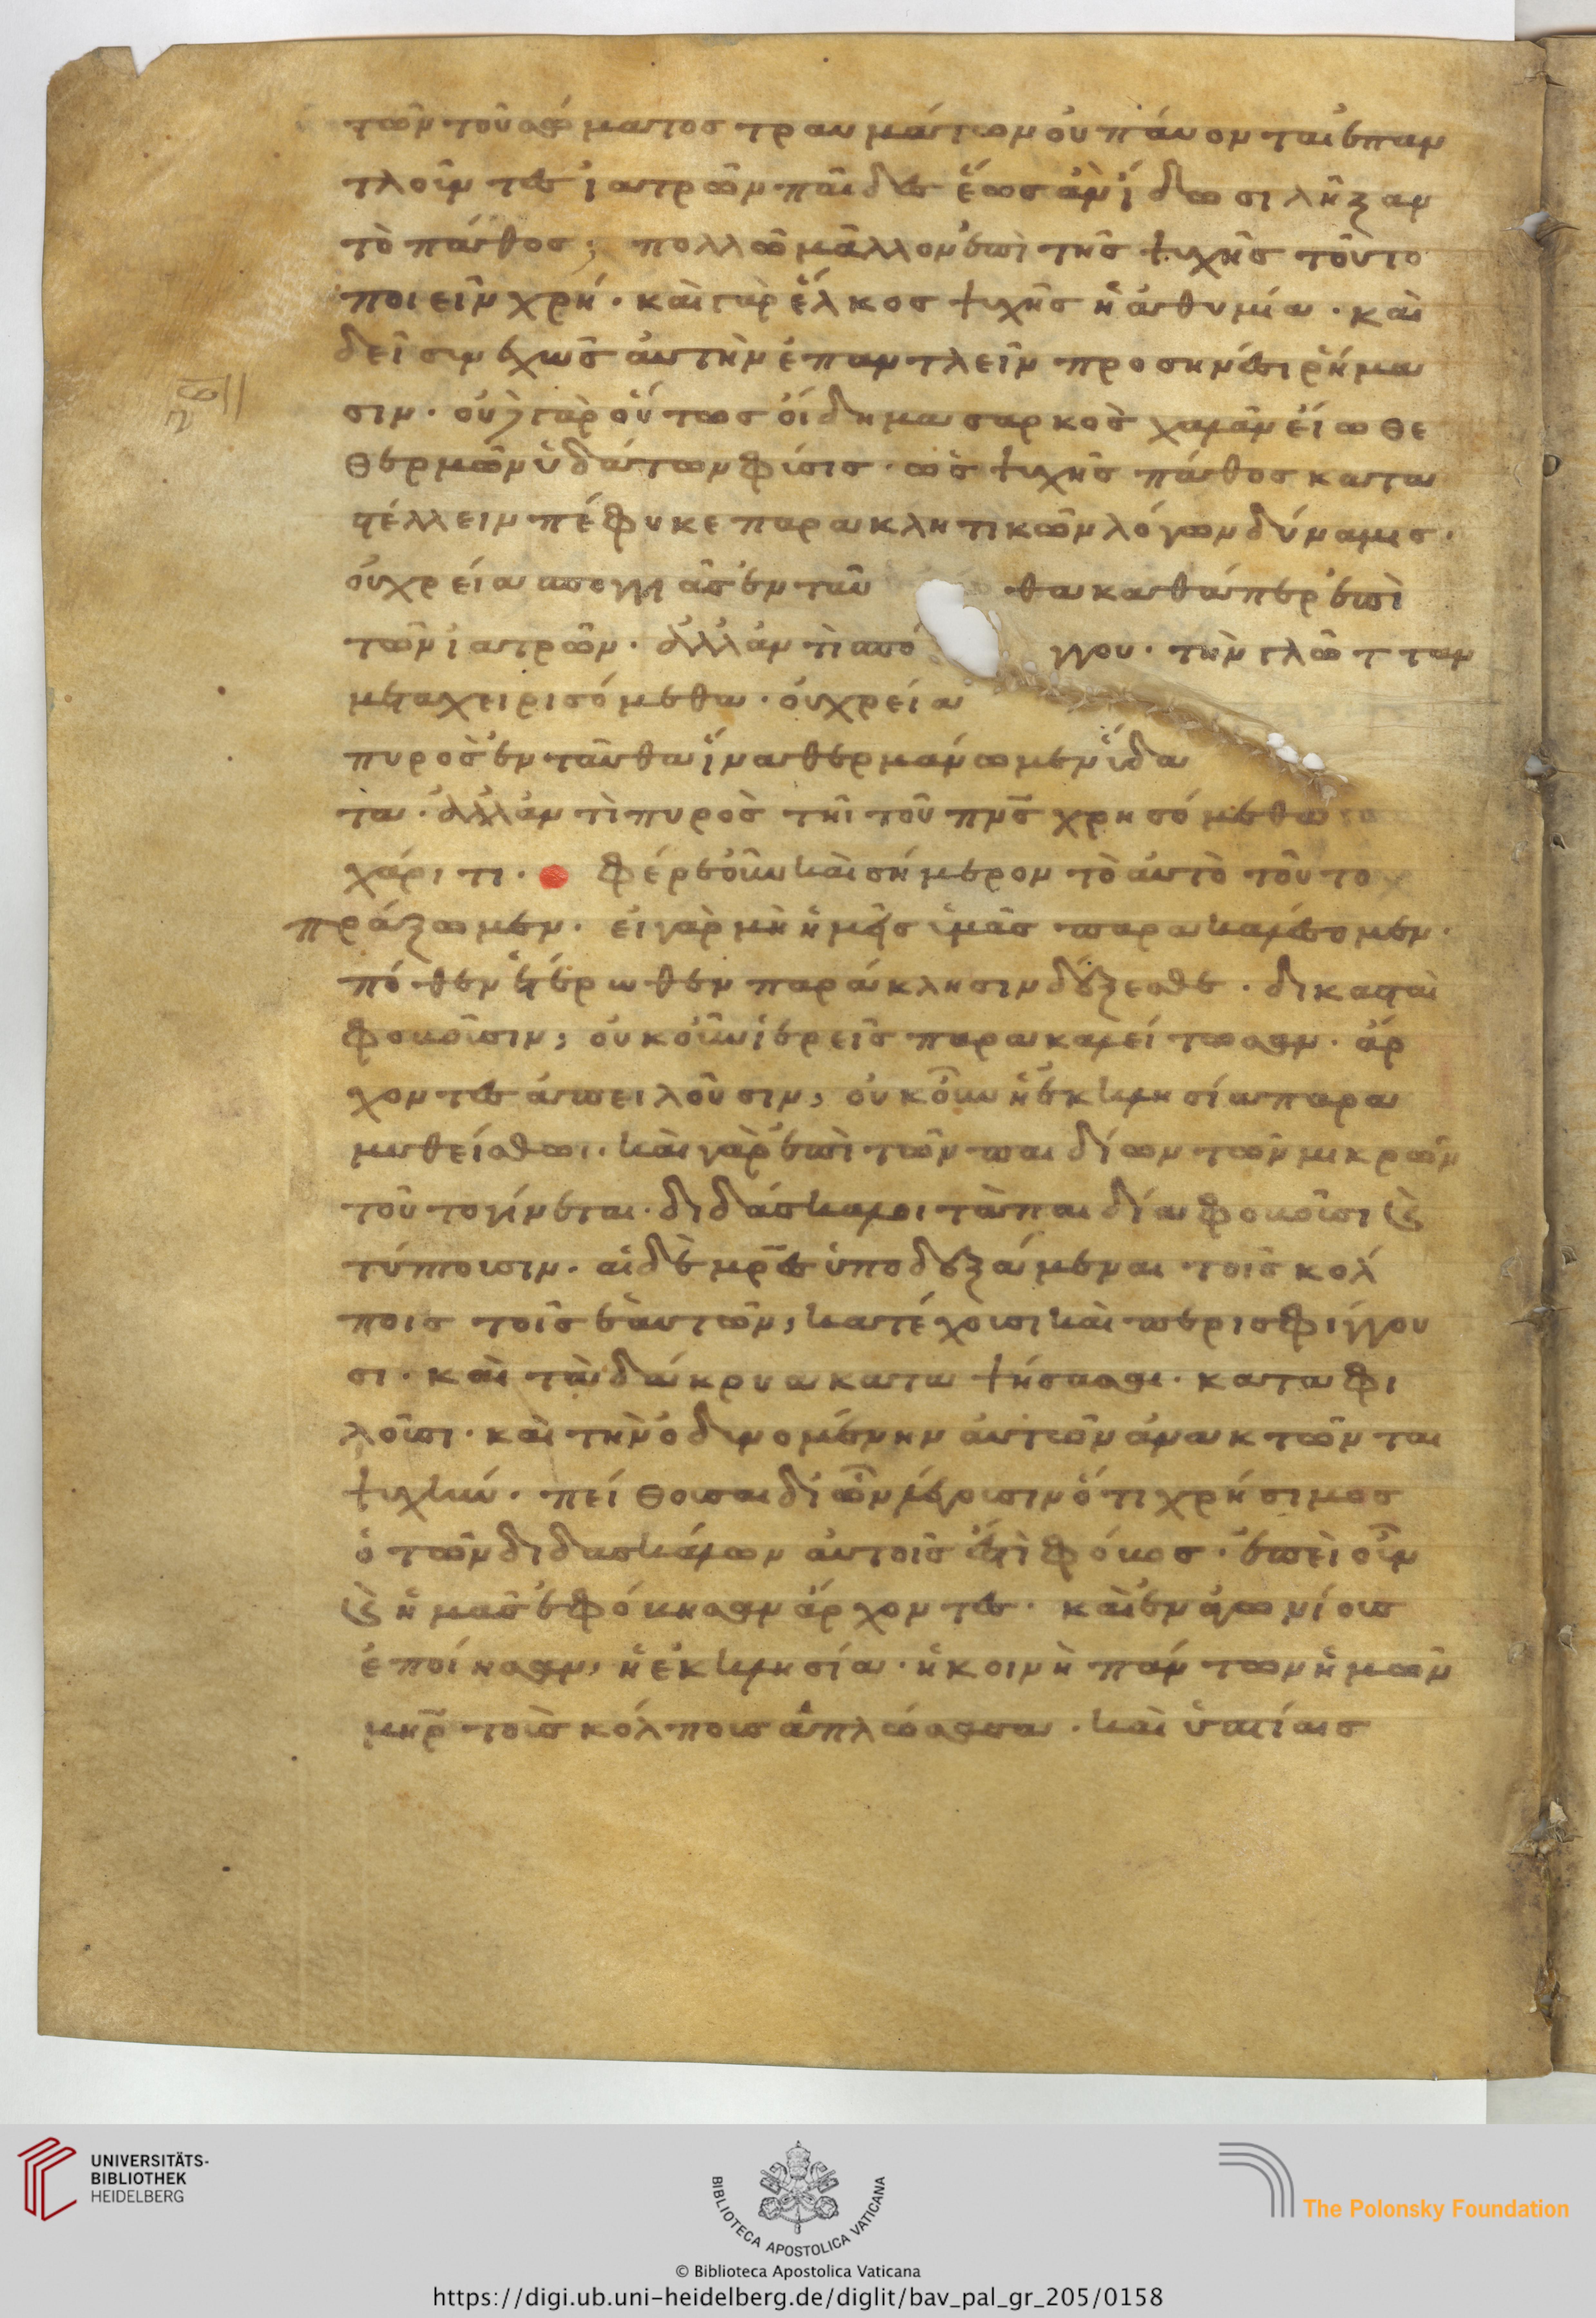 τῶν τοῦ σώματος τραυμάτων οὐ παύονται ἐπαν
τλοῦντες ἰατρῶν παῖδες ἕως ἂν ἴδωσι λῆξαν
τὸ πάθος, πολλῶ μᾶλλον ἐπὶ τῆς ψυχῆς τοῦτο
ποιεῖν χρή. καὶ γὰρ ἕλκος ψυχῆς ἡ ἀθυμία. καὶ
δεῖ συνεχῶς αὐτὴν ἐπαντλεῖν προσηνέσι ῥήμα
σιν. οὐχ γὰρ οὕτως οἴδημα σαρκὸς χαλᾶν εἴωθε
θερμῶν ὑδάτων φύσις. ὡς ψυχῆς πάθος κατα
στέλλειν πέφυκε παρακλητικῶν λόγων δύναμις.
οὐ χρεία σπογγιᾶς ἐνταῦ θα καθάπερ ἐπὶ
τῶν ἰατρῶν. ἀλλ' ἀντὶ σπό γγου. τὴν γλῶτταν
μεταχειρισόμεθα. οὐ χρεία
πυρὸς ἐνταῦθα ἵνα θερμάνωμεν ὕδα
τα. ἀλλ' ἀντὶ πυρὸς τῆι τοῦ πνς χρησόμεθα
χάριτι. φέρε οὖν καὶ σήμερον τὸ αὐτὸ τοῦτο
πράξωμεν. εἰ γὰρ μὴ ἡμεῖς ὑμᾶς παρακαλέσομεν.
πόθεν ἑτέρωθεν παράκλησιν δέξεσθε. δικασταὶ
φοβοῦσιν; οὐκοῦν ἱερεῖς παρακαλείτωσαν. ἄρ
χοντες ἀπειλοῦσιν, οὐκοῦν ἡ ἐκκλησία παρα
μυθείσθω. καὶ γὰρ ἐπὶ τῶν παιδίων τῶν μικρῶν
τοῦτο γίνεται. διδάσκαλοι τὰ παιδία φοβοῦσι καὶ
τύπτουσιν. αἱ δὲ μρες ὑποδεξάμεναι τοῖς κόλ
ποις τοῖς ἑαυτῶν, κατέχουσι καὶ περισφίγγου
σι. καὶ τὰ δάκρυα καταψήσασαι. καταφι
λοῦσι. καὶ τὴν ὀδυνομένην αὐτῶν ἀνακτῶνται
ψυχήν. πείθουσαι δι' ὧν λέγουσιν ὅτι χρήσιμος
ὁ τῶν διδασκάλων αὐτοῖς ἐστὶ φόβος. ἐπεὶ οὖν
καὶ ἡμᾶς ἐφόβησαν ἄρχοντες. καὶ ἐναγωνίους
ἐποίησαν, ἡ ἐκκλησία. ἡ κοινὴ πάντων ἡμῶν
μηρ τοὺς κόλπους ἁπλώσασα. καὶ ὑπτίαις
UNIVERSITÄTS-
BIBLIOTHEK
HEIDELBERG
BIBLIOTECA APOSTOLICA VATICANA
The Polonsky Foundation
© Biblioteca Apostolica Vaticana
https://digi.ub.uni-heidelberg.de/diglit/bav_pal_gr_205/0158